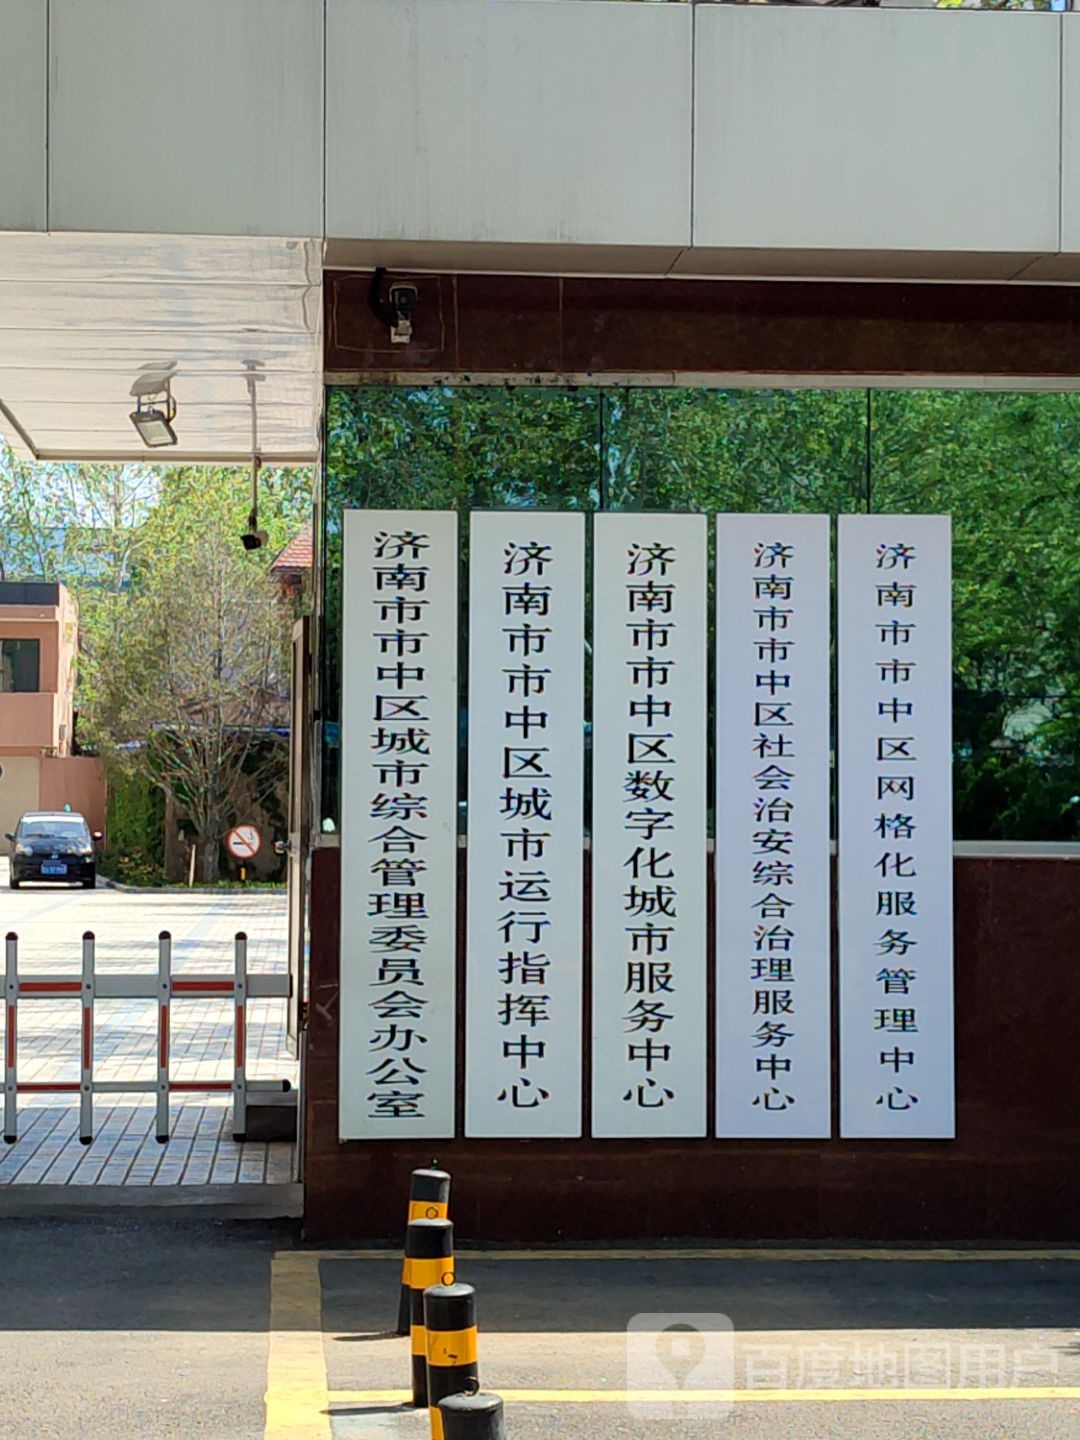 济南市市中区城市综合管理委员会办公室
济南市市中区城市运行指挥中心
济南市市中区数字化城市服务中心
济南市市中区社会治安综合治理服务中心
济南市市中区网格化服务管理中心
百度地图用户